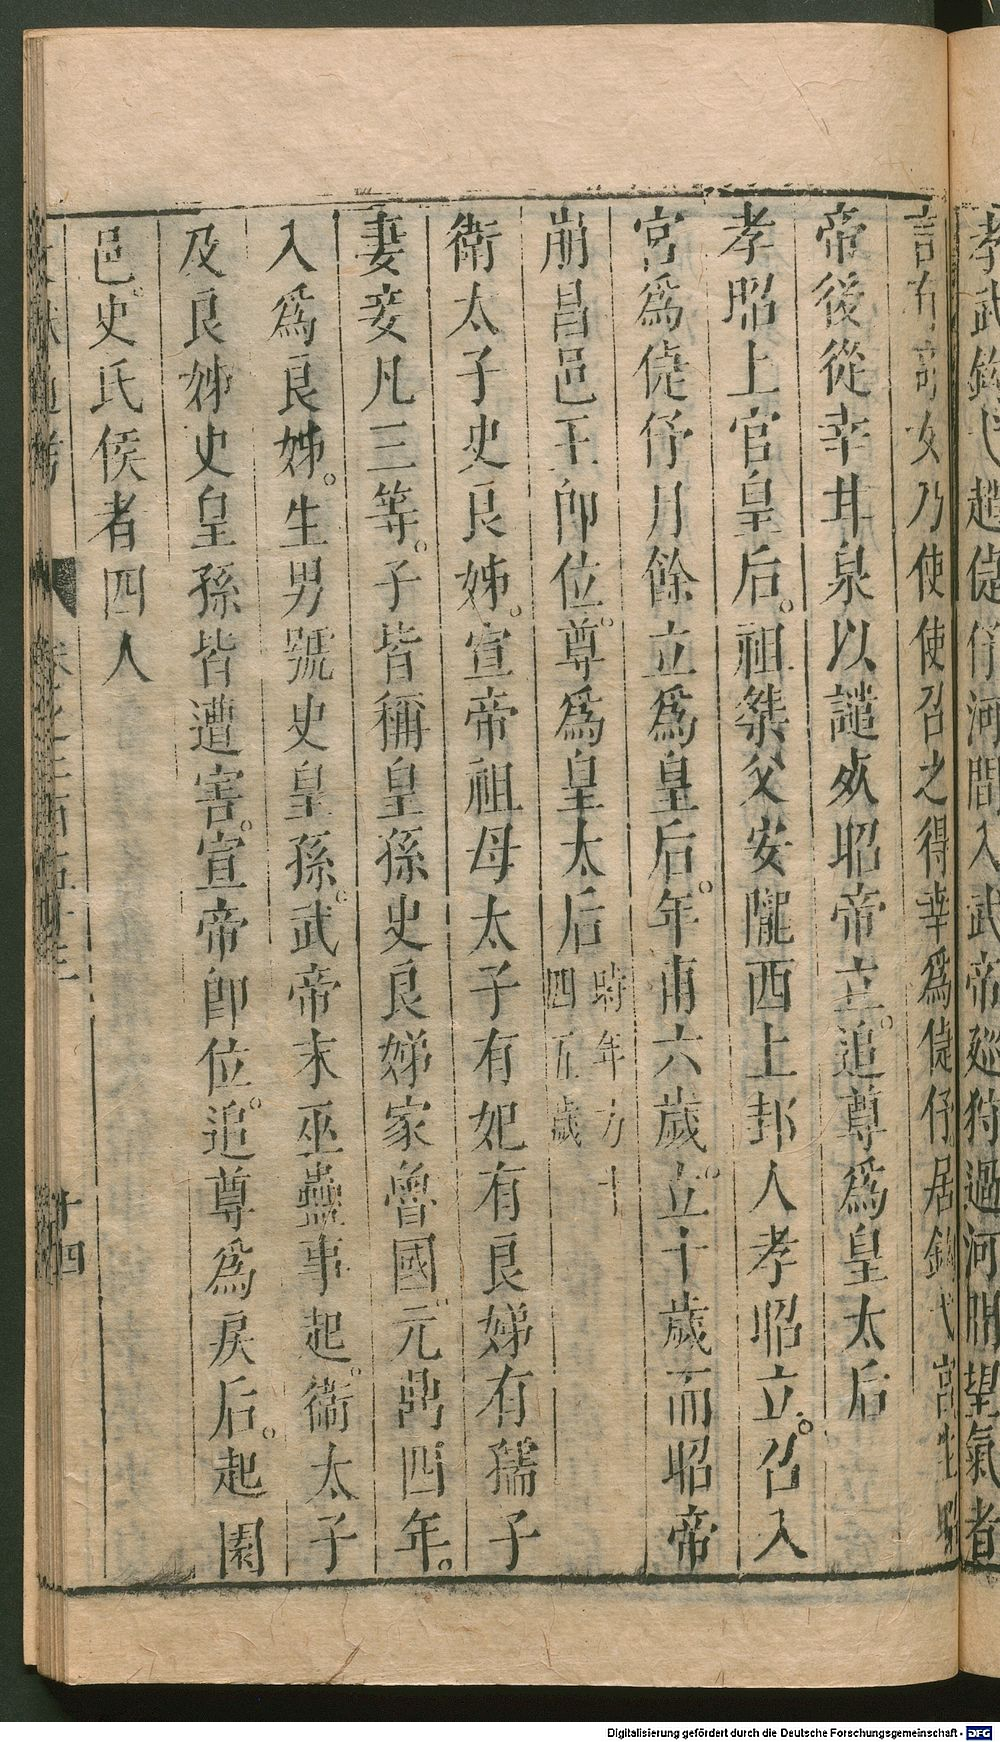 孝武鉤弋趙倢伃河間人武帝廵狩過河間望氣者
言有竒女乃使使召之得幸爲倢伃居鉤弋宫生昭
帝後從幸井泉以譴死昭帝立追尊爲皇太后
孝昭上官皇后祖桀父安隴西上邽人孝昭立召入
宮爲倢伃月餘立爲皇后年甫六歲立十歲而昭帝
崩昌邑王卽位尊爲皇太后時年方十
四五歲
衛太子史良姊宣帝祖母太子有妃有良娣有孺子
妻妾凡三等子皆稱皇孫史良娣家魯國元鼎四年
入爲良姊生男號史皇孫武帝末巫蠱事起衛太子
及良姊史皇孫皆遭害宣帝卽位追尊爲戾后起園
邑史氏侯者四人
十四
Digitalisierung gefördert durch die Deutsche Forschungsgemeinschaft - DFG